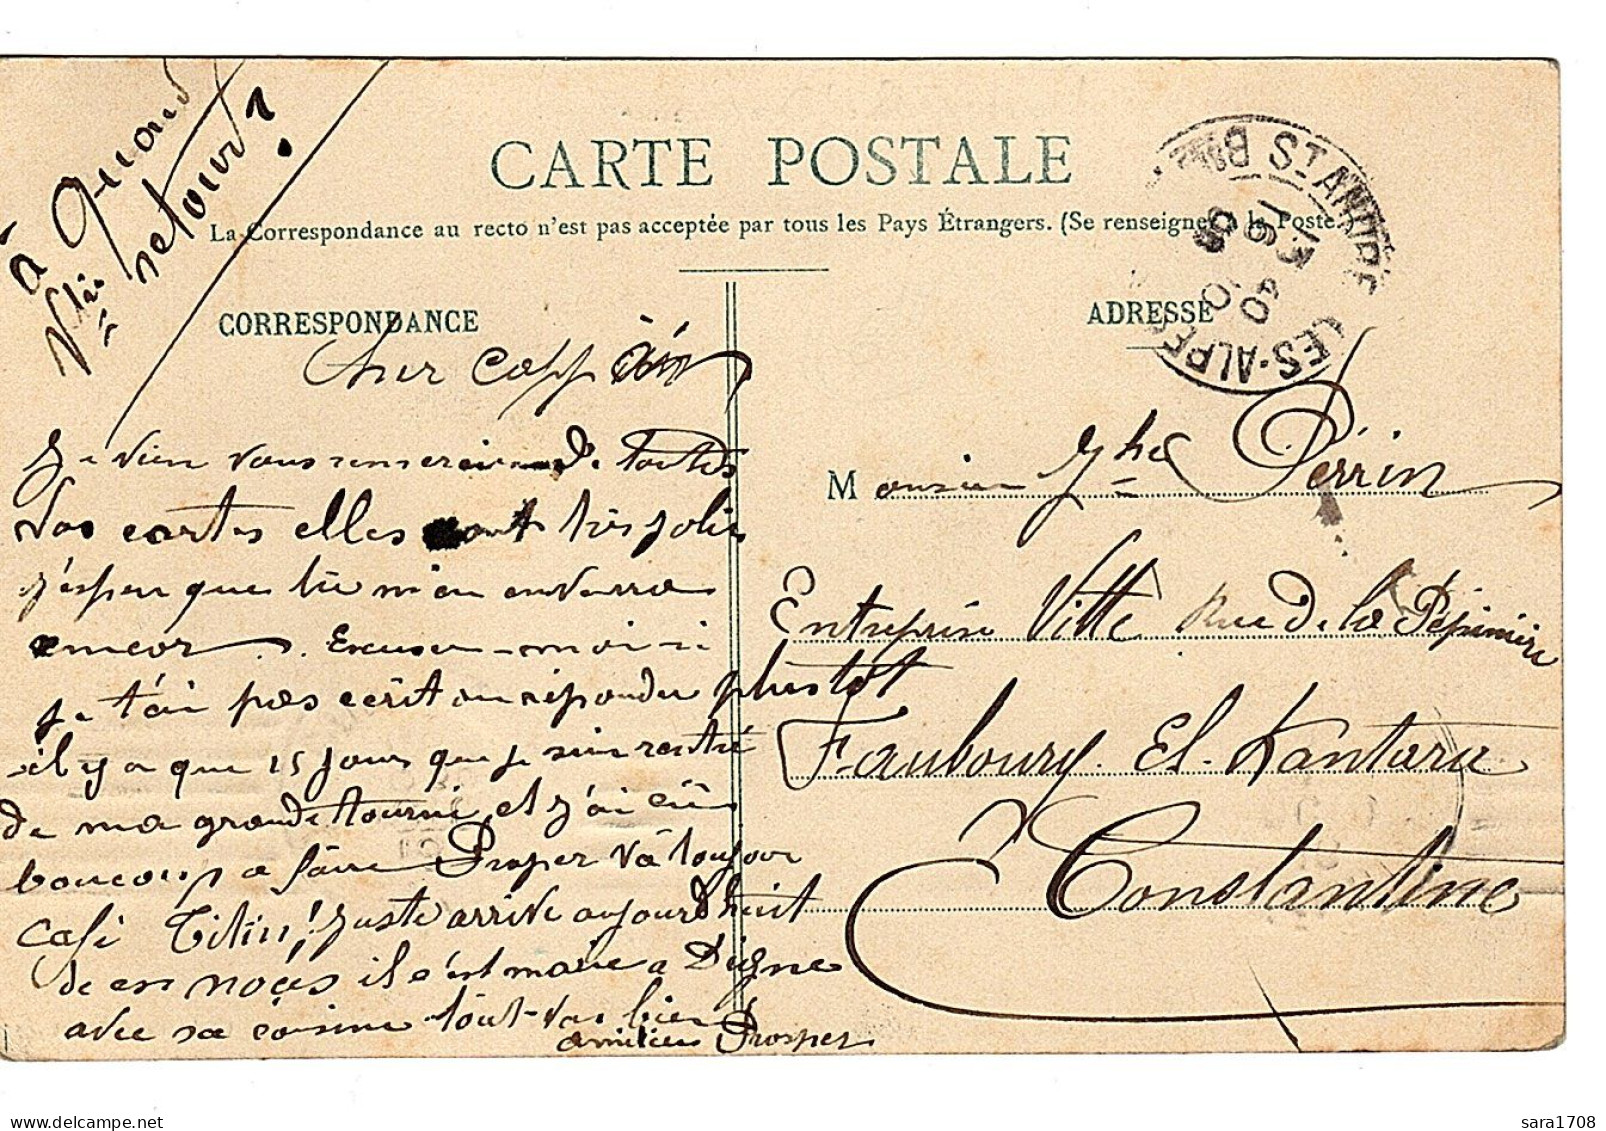 à Quand
Vtre
retour ?
CARTE POSTALE
La Correspondance au recto n'est pas acceptée par tous les Pays Étrangers. (Se renseigner à la Poste
ST ANDRÉ
LES-ALPES
CORRESPONDANCE
ADRESSE
Cher
Je vien vous remercier De toutes
Vos cartes elles sont très jolie
j'esper que tu m'en enverra
encor . . Excuser-moi si
je t'ai pas ecrit ou répondu plustôt
il y a que 15 jours que je suis rentré
De ma grande tourné, et j'ai eû
boucoup a faire Prosper Và toujour
Café Titin ! Juste arrive aujourd'huit
de en noçes il c'est marie a Digne
avec sa cousine tout-va bien
amitiés Prosper
M onsieur Jhe Perrin
Entreprise Vitte Rue De la Pépinière
Faubourg. El-Kantara
Constantine
sara1708